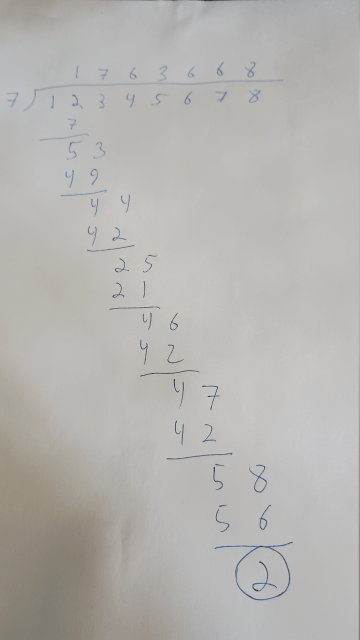 1 7 6 3 6 6 8
7)1 2 3 4 5 6 7 8
7
5 3
4 9
4 4
4 2
2 5
2 1
4 6
4 2
4 7
4 2
5 8
5 6
2